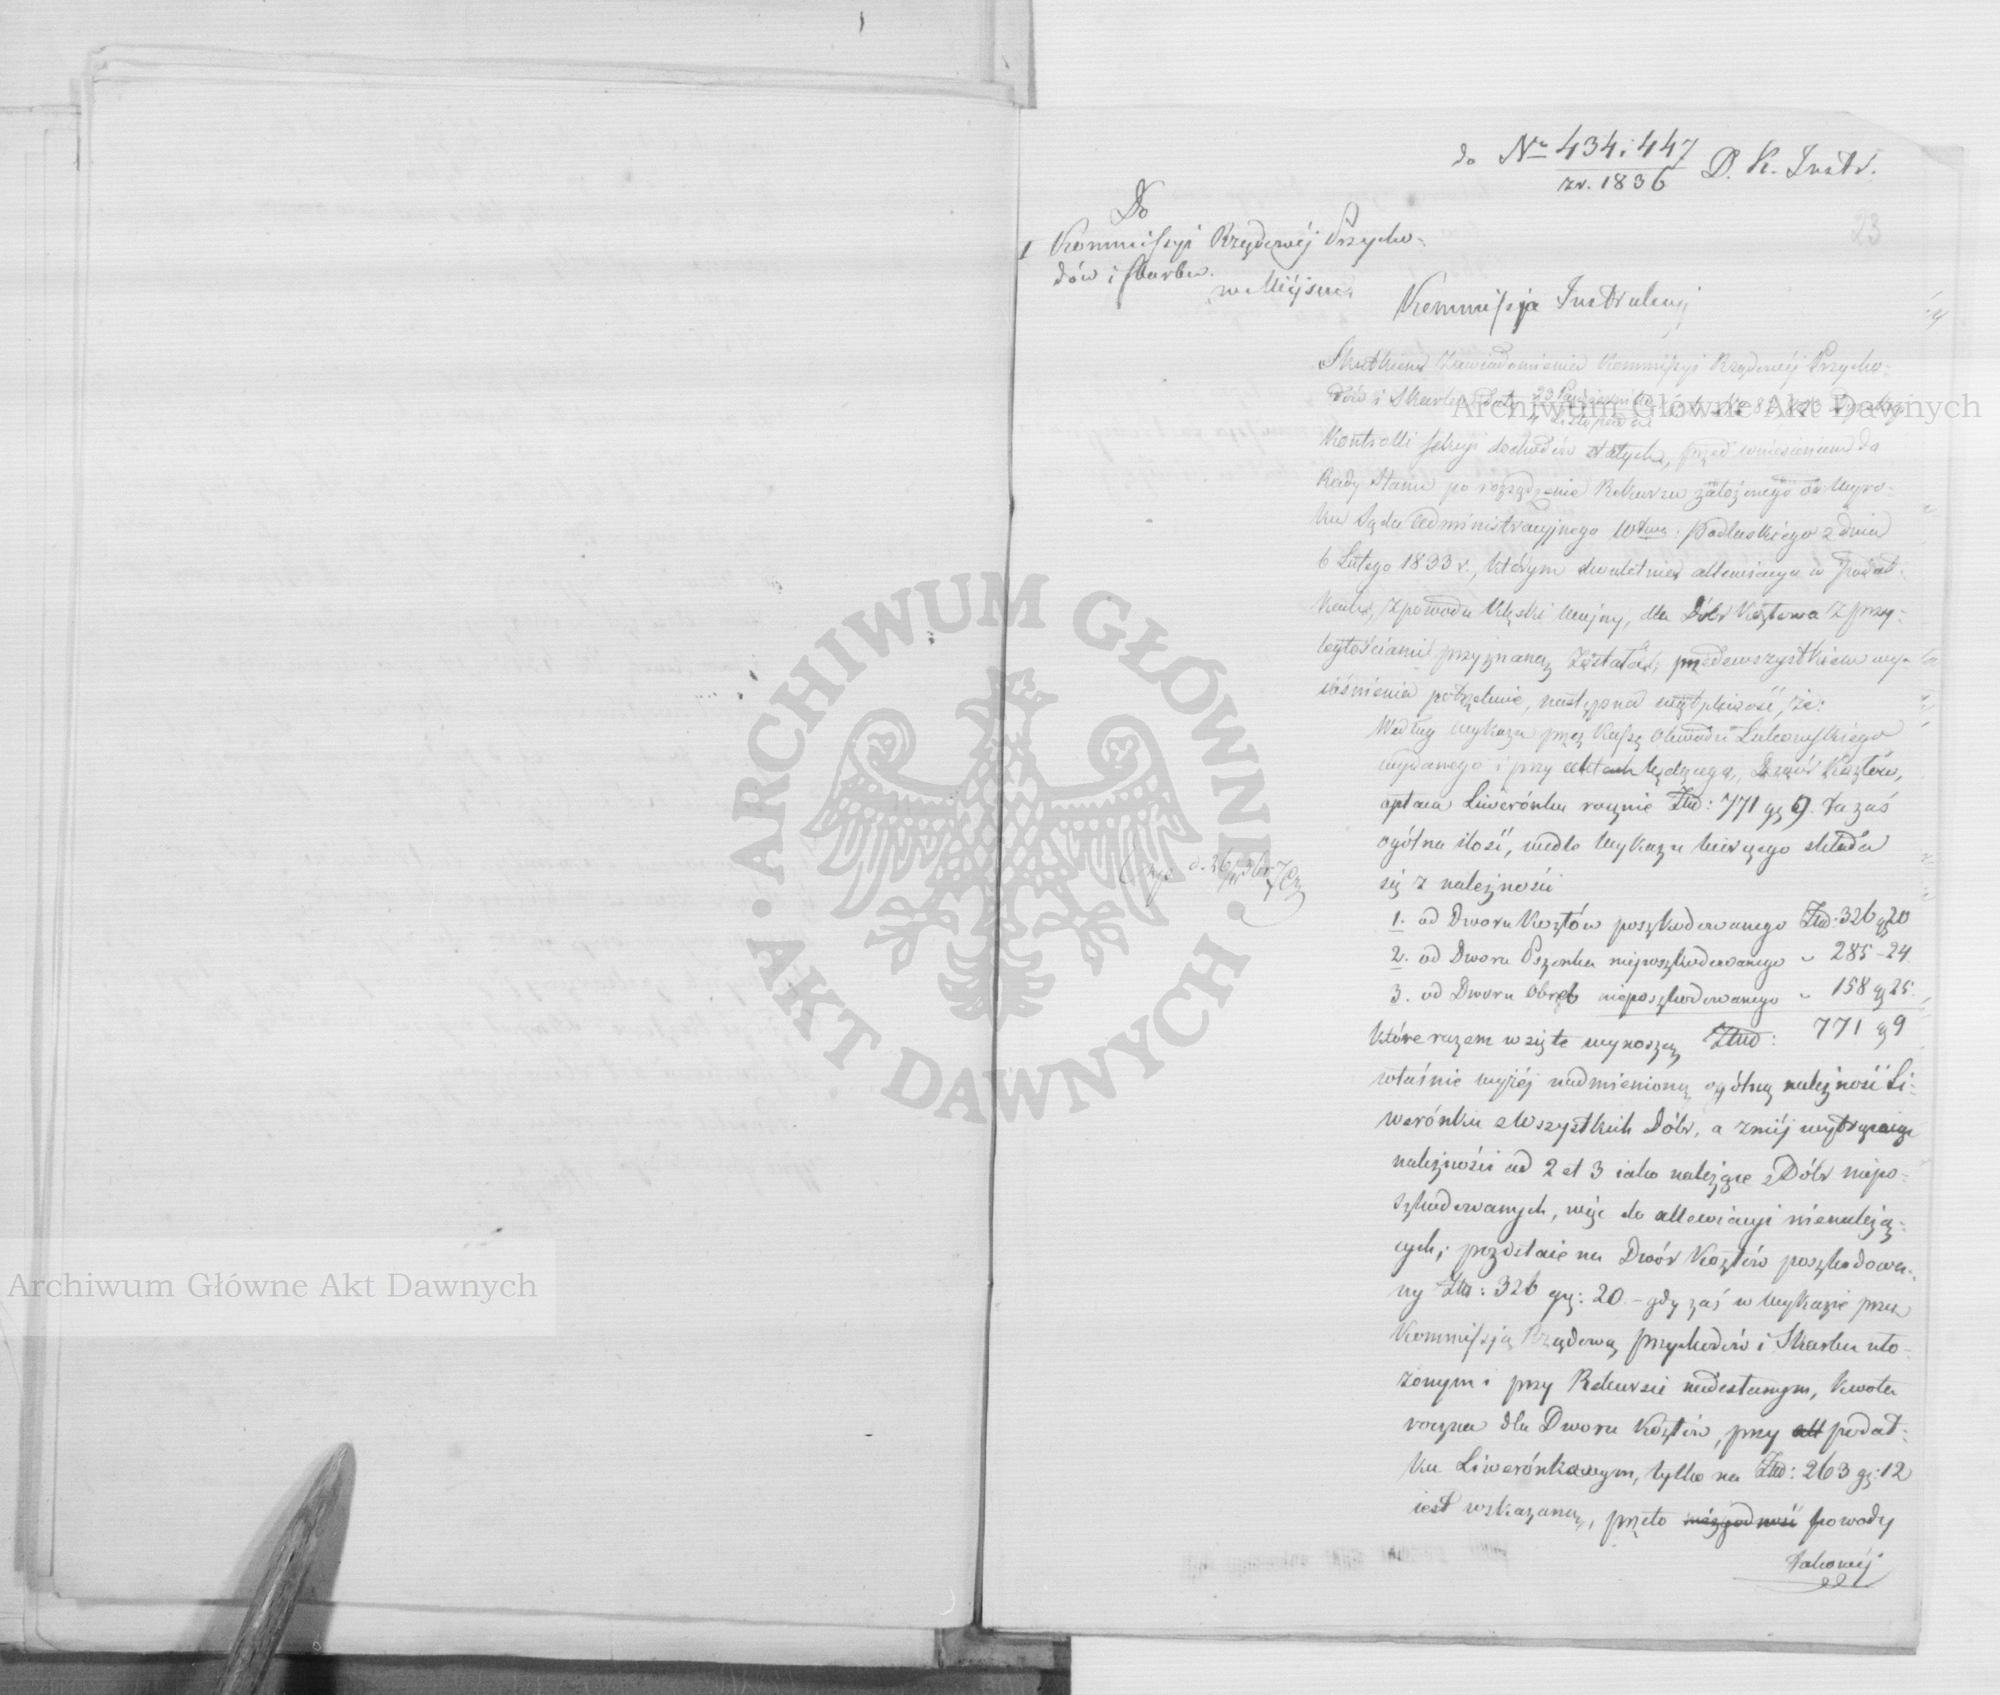 do Nro 434 i 447 D. K. Instr.
z r. 1836
23
Do
Kommissyi Rządowéj Przycho-
dów i Skarbu.
w Miéjscu
Kommissja Instrukcyj
Skutkiem zawiadomienia Kommissyi Rządowéj Przycho-
dów i Skarbu z daty 23 Października
4 Listopada
Kontrolli Sekcyi dochodów stałych, przed wniesieniem do
Rady Stanu po rozsądzenie Rekursu założonego od Wyro-
ku Sądu Administracyjnego Wtwa: Podlaskiego z dnia
6 Lutego 1833 r., którym dwuletnia allewiacya w podat-
kach, z powodu klęski woyny, dla Dóbr Kosztowa z przy-
ległościami przyznaną została, przedewszystkiem wyi-
iaśnienia potrzebuie, następna wątpliwość, że:
Według wykazu przez Kassę Obwodu Łukowskiego
wydanego i przy aktach będącego, Dwór Kosztów,
opłaca Liwerónku rocznie Złtd: 771 gr 9. Ta zaś
ogólna ilość, wedle Wykazu bieżącego składa
się z należności
1. od Dworu Kosztów poszkodowanego Złtd: 326 gr 20
2. od Dworu Pszonka nieposzkodowanego " 285 - 24
3. od Dworu Obręb nieposzkodowanego " 158 gr 25
Które razem wzięte wynoszą Złtd: 771 gr 9
właśnie wyżéj nadmienioną ogólną należność Li-
werónku z Wszystkich Dóbr, a z niéj wytrąciwszy
należności ad 2 et 3 iako należące z Dóbr niepo-
szkodowanych, więc do allewiacyi nienależą-
cych; pozostaie na Dwór Kosztów poszkodowa-
ny Złtd: 326 gr: 20. - gdy zaś w Wykazie przez
Kommissją Rządową Przychodów i Skarbu uło-
żonym i przy Rekursie nadesłanym, kwota
roczna dla Dworu Kosztów, przy podat-
ku Liwerónkowym, tylko na Złtd: 263 gr: 12
iest wskazaną, przeto niezgodność powody
takowéj
Archiwum Główne Akt Dawnych
Archiwum Główne Akt Dawnych
ARCHIWUM GŁÓWNE
AKT DAWNYCH